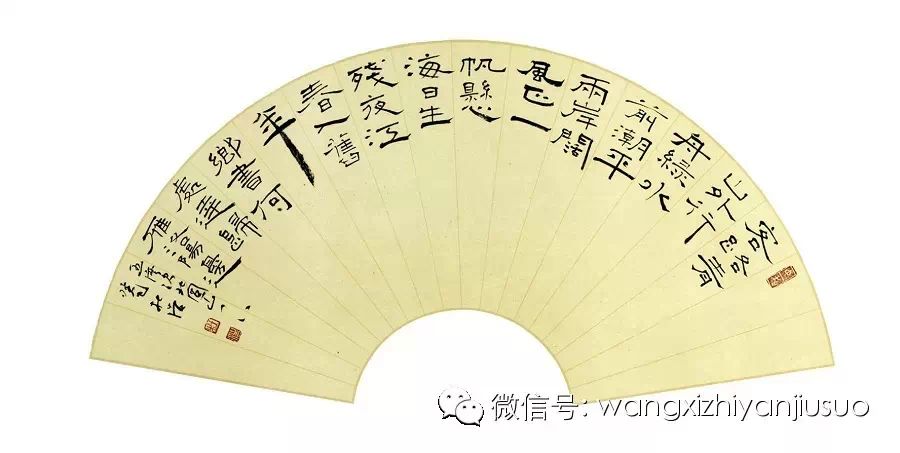 客路青
山外行
舟綠水
前潮平
兩岸闊
風正一
帆懸
海日生
殘夜江
春入舊
年
鄉書何
處達歸
雁洛陽邊
王灣次北固山下
癸巳
微信号: wangxizhiyanjiusuo